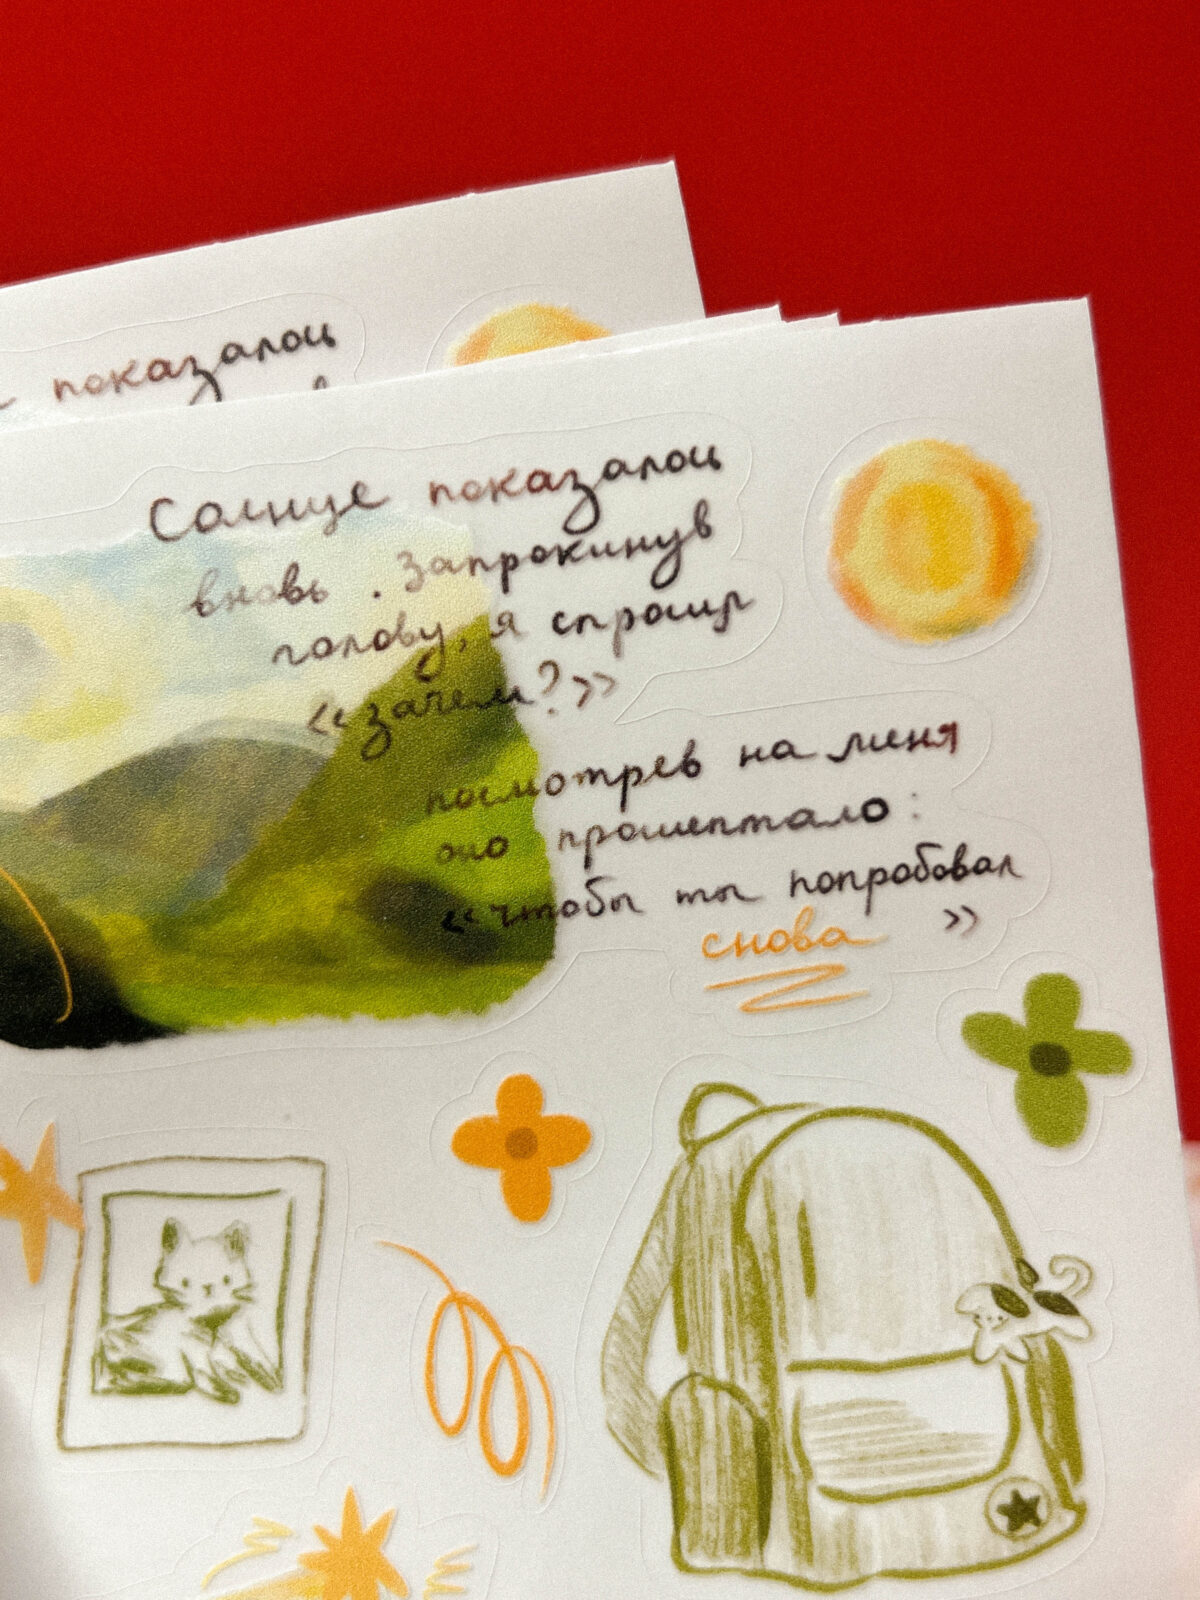 показалось
Солнце показалось
вновь. Запрокинув
голову, я спросил
«зачем?»
посмотрев на меня
оно прошептало:
«чтобы ты попробовал
снова »